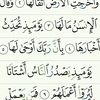 وَأَخْرَجَتِ ٱلْأَرْضُ أَثْقَالَهَا ٢ وَقَالَ
ٱلْإِنسَٰنُ مَا لَهَا ٣ يَوْمَئِذٍ تُحَدِّثُ
أَخْبَارَهَا ٤ بِأَنَّ رَبَّكَ أَوْحَىٰ لَهَا ٥
يَوْمَئِذٍ يَصْدُرُ ٱلنَّاسُ أَشْتَاتًا
لِّيُرَوْا۟ أَعْمَٰلَهُمْ ٦ فَمَن